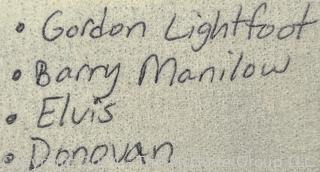 • Gordon Lightfoot
• Barry Manilow
• Elvis
• Donovan